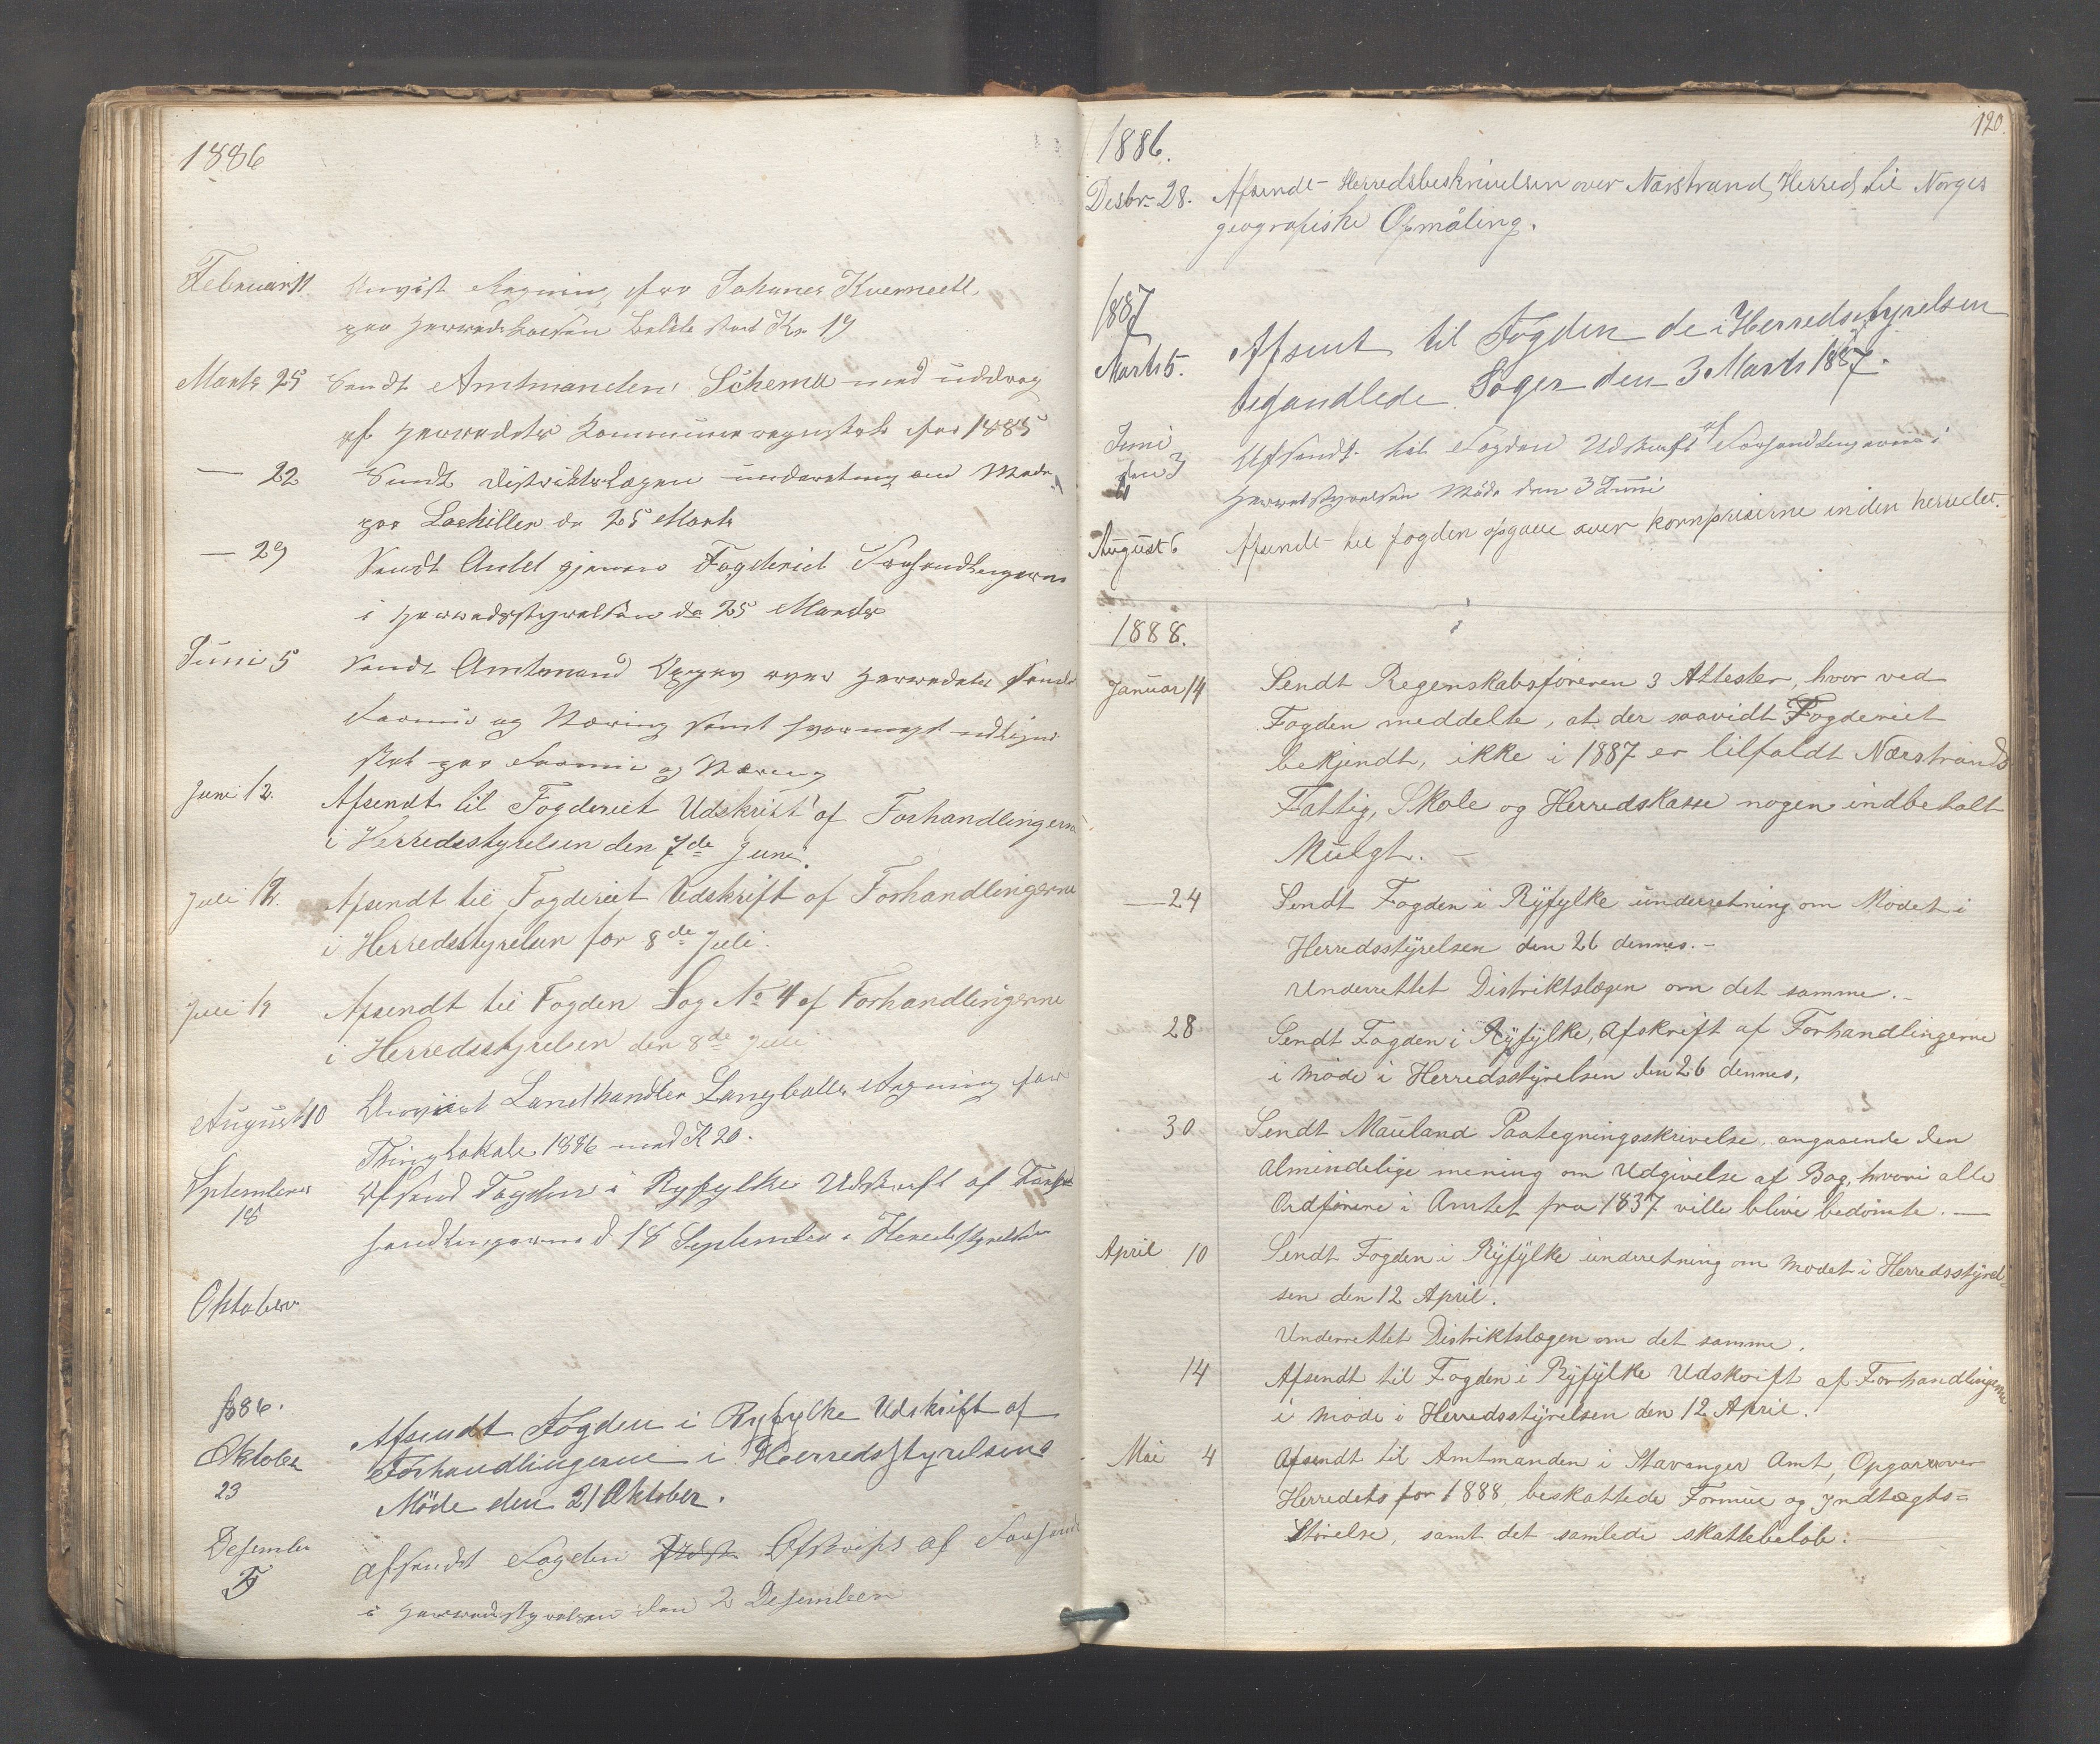 1886
Februar 11 Anvist Regning fra Johanes Kverneell
paa Herredskassen stort Kr 19
Marts 25 Sendt Amtmanden Schema med uddrag
af Herredets Kommuneregnskab for 1885
— 22 Sendt Distriktslægen underretning om Møde
paa den 25 Marts
— 29 Sendt Amtet gjennem Fogderiet Forhandlingerne
i Herredsstyrelsen de 25 Marts
Juni 5 Sendt Amtmand Opgav over Herredets
Formue og Næring samt hvormeget udligne
paa Formue og Næring
Juni 12. Afsendt til Fogderiet Udskrift af Forhandlingerne
i Herredsstyrelsen den 7de Juni.
Juli 12. Afsendt til Fogderiet Udskrift af Forhandlingerne
i Herredsstyrelsen for 8de Juli.
Juli 19 Afsendt til Fogden Sag No 4 af Forhandlingerne
i Herredsstyrelsen den 8de Juli
August 10 Anvist Landhandler Langballe Regning for
Thinglokale 1886 med K 20.
September 18 Afsend Fogden i Ryfylke Udskrift af Forhandlingerne d 18 September i Herredsstyrelsen
Oktober
1886.
Oktober 23 Afsendt Fogden i Ryfylke Udskrift af
Forhandlingerne i Herredsstyrelsens
Möde den 21 Oktober.
Desember Afsendt Fogden Afskrift af Forhand
i Herredsstyrelsen den 2 Desember
120.
1886.
Desbr 28. Afsendt Herredsbeskrivelsen over Narstrand Herred til Norges
geografiske Opmåling.
1887
Marts 5. Afsent til Fogden de i Herredsstyrelsen
behandlede Sager den 3 Marts 1887.
Juni den 3 Afsendt til Fogden Udskrift af Forhandlingerne i
Herredsstyrelsen Möde den 3 Juni
August 6 Afsendt til fogden opgave over kornpriserne inden herredet.
1888.
Januar 14 Sendt Regenskabsføreren 3 Attester, hvor ved
Fogden meddelte, at der saavidt Fogderiet
bekjendt, ikke i 1887 er tilfaldt Nærstrands
Fattig, Skole og Herredskasse nogen indbetalt
Mulgt. —
— 24 Sendt Fogden i Ryfylke underretning om Mødet i
Herredsstyrelsen den 26 dennes. —
Underrettet Distriktslægen om det samme. —
28 Sendt Fogden i Ryfylke, Afskrift af Forhandlingerne
i møde i Herredsstyrelsen den 26 dennes,
30 Sendt Mauland Paategningsskrivelse, angaaende den
almindelige mening om Udgivelse af Bog, hvori alle
Ordførere i Amtet fra 1837 ville blive bedømte. —
April 10 Sendt Fogden i Ryfylke underretning om Mødet i Herredsstyrel-
sen den 12 April.
Underrettet Distriktslægen om det samme.
14 Afsendt til Fogden i Ryfylke Udskrift af Forhandlingerne
i møde i Herredsstyrelsen den 12 April.
Mai 4 Afsendt til Amtmanden i Stavanger Amt, Opgave over
Herredets for 1888 beskattede Formue og Indtægts=
Størelse, samt det samlede skattebeløb. —